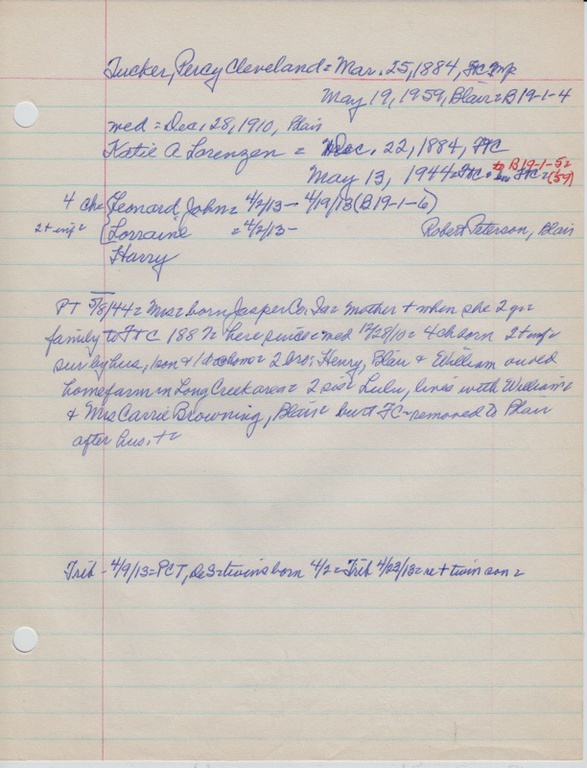 Tucker, Percy Cleveland = Mar. 25, 1884, FC
May 19, 1959, Blair = B19-1-4
med = Dec. 28, 1910, Blair
Katie A Lorenzen = Dec. 22, 1884, FC
to B19-1-5 =
May 13, 1944 = FC = FC = (59)
4 ch = Leonard John = 4/2/13 - 4/19/13 (B19-1-6)
2 + inf = Lorraine = 4/2/13 - Robert Peterson, Blair
Harry
PT 5/8/44 = Mrs = born Jasper Co. Ia = mother + when she 2 yr =
family to FC 1887 = here since = med 12/28/10 = 4 ch born 2 + inf =
sur by hus, 1 son & 1 d = 2 bro; Henry, Blair & William on old
home farm in Long Creek area = 2 sis = Lulu, lives with William =
& Mrs Carrie Browning, Blair = buri FC = removed to Blair
after hus. + =
Trib - 4/9/13 = PCT, De3 = twins born 4/2 = Trib 4/23/13 = re + twin son =